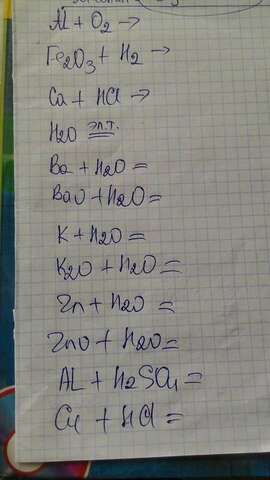 Al + O2 →
Fe2O3 + H2 →
Ca + HCl →
H2O эл.т.
Ba + H2O =
BaO + H2O =
K + H2O =
K2O + H2O =
Zn + H2O =
ZnO + H2O =
AL + H2SO4 =
Cu + HCl =